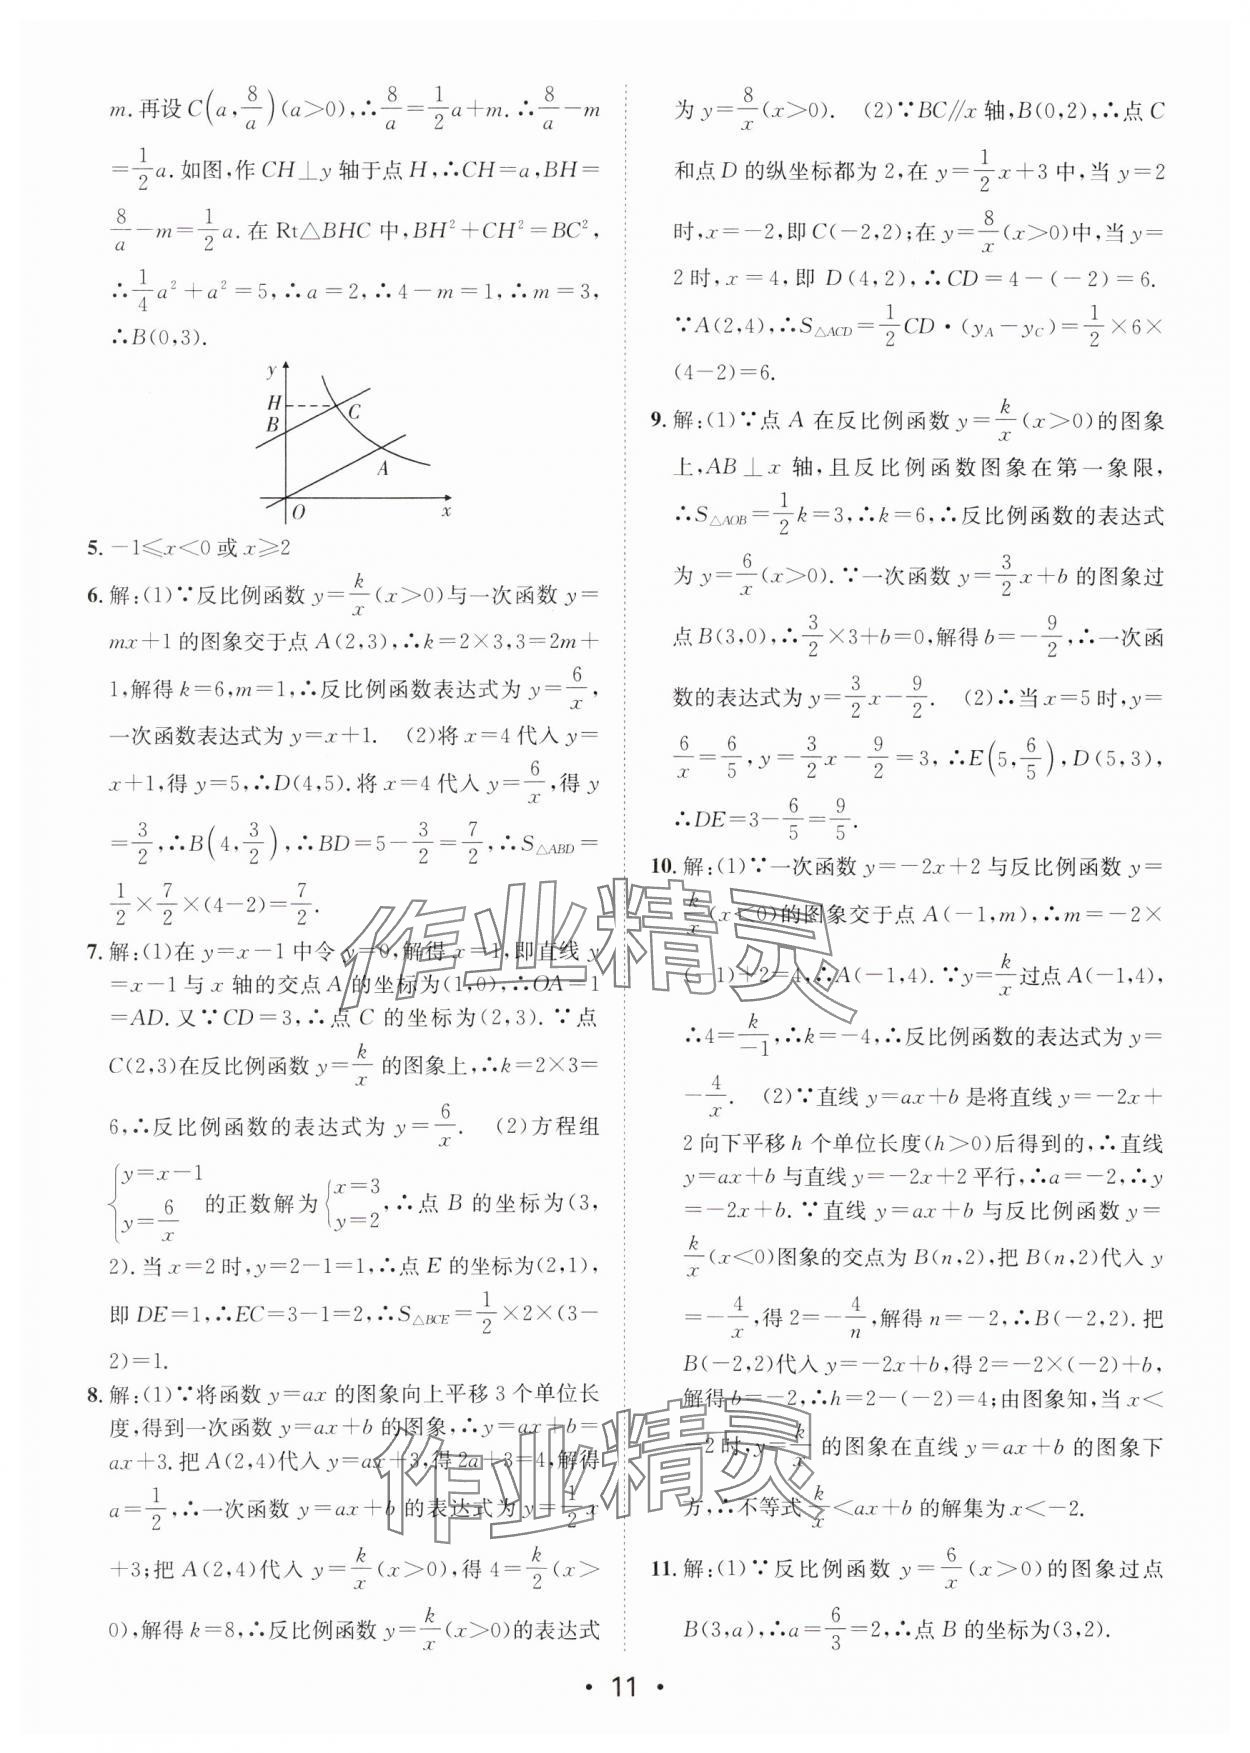 m.再设C(a,8/a)(a>0),∴8/a=1/2a+m.∴8/a-m
=1/2a.如图,作CH⊥y轴于点H,∴CH=a,BH=
8/a-m=1/2a.在Rt△BHC中,BH²+CH²=BC²,
∴1/4a²+a²=5,∴a=2,∴4-m=1,∴m=3,
∴B(0,3).
y
H
C
B
A
O
x
5. -1≤x<0或x≥2
6. 解:(1)∵反比例函数y=k/x(x>0)与一次函数y=
mx+1的图象交于点A(2,3),∴k=2×3,3=2m+
1,解得k=6,m=1,∴反比例函数表达式为y=6/x,
一次函数表达式为y=x+1. (2)将x=4代入y=
x+1,得y=5,∴D(4,5).将x=4代入y=6/x,得y
=3/2,∴B(4,3/2),∴BD=5-3/2=7/2,∴S△ABD=
1/2×7/2×(4-2)=7/2.
7. 解:(1)在y=x-1中令y=0,解得x=1,即直线y
=x-1与x轴的交点A的坐标为(1,0),∴OA=1
=AD.又∵CD=3,∴点C的坐标为(2,3).∵点
C(2,3)在反比例函数y=k/x的图象上,∴k=2×3=
6,∴反比例函数的表达式为y=6/x. (2)方程组
{y=x-1 y=6/x 的正数解为{x=3 y=2,∴点B的坐标为(3,
2).当x=2时,y=2-1=1,∴点E的坐标为(2,1),
即DE=1,∴EC=3-1=2,∴S△BCE=1/2×2×(3-
2)=1.
8. 解:(1)∵将函数y=ax的图象向上平移3个单位长
度,得到一次函数y=ax+b的图象,∴y=ax+b=
ax+3.把A(2,4)代入y=ax+3,得2a+3=4,解得
a=1/2,∴一次函数y=ax+b的表达式为y=1/2x
+3;把A(2,4)代入y=k/x(x>0),得4=k/2(x>
0),解得k=8,∴反比例函数y=k/x(x>0)的表达式
为y=8/x(x>0). (2)∵BC//x轴,B(0,2),∴点C
和点D的纵坐标都为2,在y=1/2x+3中,当y=2
时,x=-2,即C(-2,2);在y=8/x(x>0)中,当y=
2时,x=4,即D(4,2),∴CD=4-(-2)=6.
∵A(2,4),∴S△ACD=1/2CD·(yA-yC)=1/2×6×
(4-2)=6.
9. 解:(1)∵点A在反比例函数y=k/x(x>0)的图象
上,AB⊥x轴,且反比例函数图象在第一象限,
∴S△AOB=1/2k=3,∴k=6,∴反比例函数的表达式
为y=6/x(x>0).∵一次函数y=3/2x+b的图象过
点B(3,0),∴3/2×3+b=0,解得b=-9/2,∴一次函
数的表达式为y=3/2x-9/2. (2)∴当x=5时,y=
6/x=6/5,y=3/2x-9/2=3,∴E(5,6/5),D(5,3),
∴DE=3-6/5=9/5.
10. 解:(1)∵一次函数y=-2x+2与反比例函数y=
k/x(x<0)的图象交于点A(-1,m),∴m=-2×
(-1)+2=4,∴A(-1,4).∵y=k/x过点A(-1,4),
∴4=k/-1,∴k=-4,∴反比例函数的表达式为y=
-4/x. (2)∵直线y=ax+b是将直线y=-2x+
2向下平移h个单位长度(h>0)后得到的,∴直线
y=ax+b与直线y=-2x+2平行,∴a=-2,∴y
=-2x+b.∵直线y=ax+b与反比例函数y=
k/x(x<0)图象的交点为B(n,2),把B(n,2)代入y
=-4/x,得2=-4/n,解得n=-2,∴B(-2,2).把
B(-2,2)代入y=-2x+b,得2=-2×(-2)+b,
解得b=-2,∴h=2-(-2)=4;由图象知,当x<
-2时,y=k/x的图象在直线y=ax+b的图象下
方,∴不等式k/x<ax+b的解集为x<-2.
11. 解:(1)∵反比例函数y=6/x(x>0)的图象过点
B(3,a),∴a=6/3=2,∴点B的坐标为(3,2).
作业精灵
作业精灵
· 11 ·